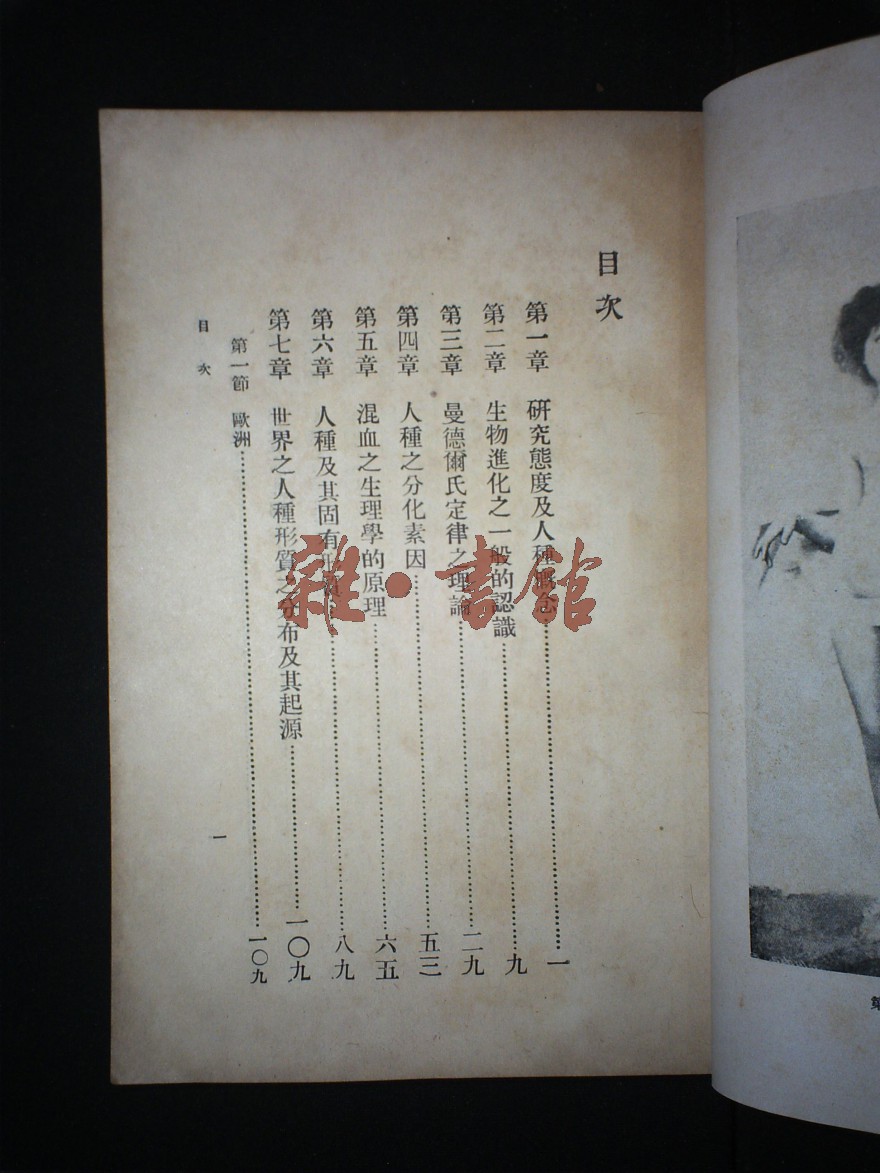 目次
第一章 研究態度及人種概念…………一
第二章 生物進化之一般的認識…………九
第三章 曼德爾氏定律之理論…………二九
第四章 人種之分化素因…………五三
第五章 混血之生理學的原理…………六五
第六章 人種及其固有形質…………八九
第七章 世界之人種形質之分布及其起源…………一〇九
第一節 歐洲…………一〇九
目次
一
雜·書館
第